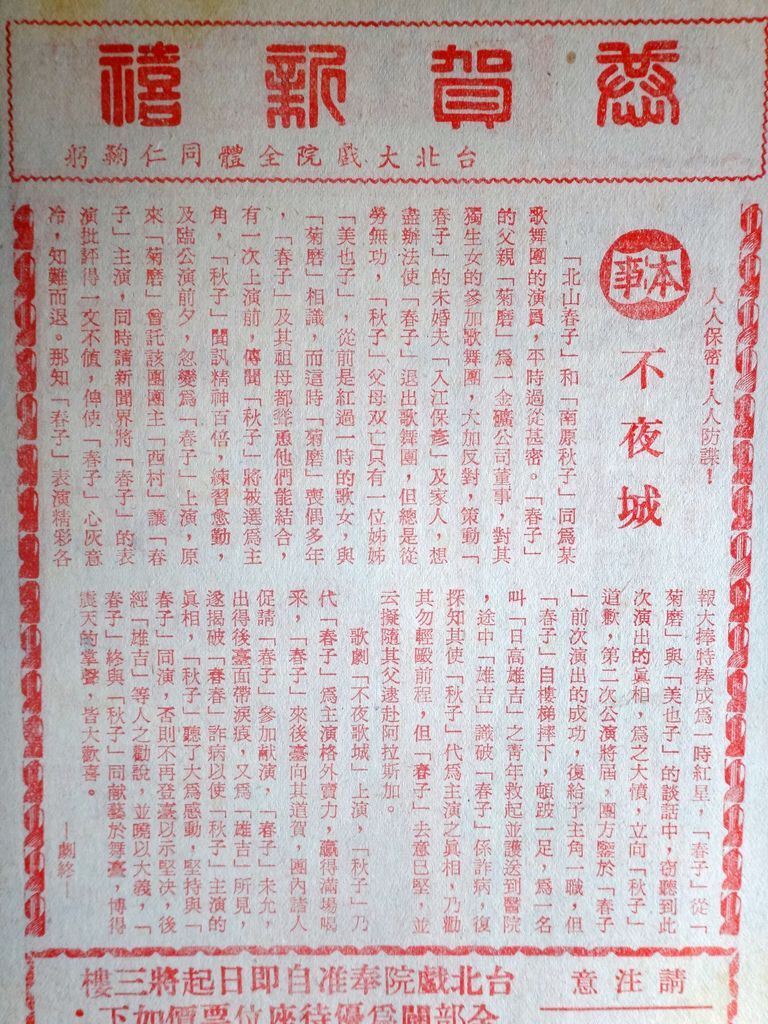 恭賀新禧
台北大戲院全體同仁鞠躬
人人保密!人人防諜!
本事
不夜城
「北山春子」和「南原秋子」同爲某
歌舞團的演員,平時過從甚密。「春子」
的父親「菊磨」爲一金礦公司董事,對其
獨生女的參加歌舞團,大加反對,策動「
春子」的未婚夫「入江保彥」及家人,想
盡辦法使「春子」退出歌舞團,但總是從
勞無功,「秋子」父母双亡只有一位姊姊
「美也子」,從前是紅過一時的歌女,與
「菊磨」相識,而這時「菊磨」喪偶多年
,「春子」及其祖母都聳恿他們能結合,
有一次上演前,傳聞「秋子」將被選爲主
角,「秋子」聞訊精神百倍,練習愈勤,
及臨公演前夕,忽變爲「春子」上演,原
來「菊磨」曾託該團團主「西村」讓「春
子」主演,同時請新聞界將「春子」的表
演批評得一文不值,俾使「春子」心灰意
冷,知難而退。那知「春子」表演精彩各
報大捧特捧成爲一時紅星,「春子」從「
菊磨」與「美也子」的談話中,窃聽到此
次演出的眞相,爲之大憤,立向「秋子」
道歉,第二次公演將屆,團方鑒於「春子
」前次演出的成功,復給予主角一職,但
「春子」自樓梯摔下,頓跛一足,爲一名
叫「日高雄吉」之靑年救起並護送到醫院
,途中「雄吉」識破「春子」係詐病,復
探知其使「秋子」代爲主演之眞相,乃勸
其勿輕毆前程,但「春子」去意已堅,並
云擬隨其父遠赴阿拉斯加。
歌劇「不夜歌城」上演,「秋子」乃
代「春子」爲主演格外賣力,贏得滿場喝
釆,「春子」來後臺向其道賀,團內諸人
促請「春子」參加献演,「春子」未允,
出得後臺面帶淚痕,又爲「雄吉」所見,
遂揭破「春春」詐病以使「秋子」主演的
眞相,「秋子」聽了大爲感動,堅持與「
春子」同演,否則不再登臺以示堅決,後
經「雄吉」等人之勸說,並曉以大義,「
春子」終與「秋子」同献藝於舞臺,博得
震天的掌聲,皆大歡喜。
—劇終—
請注意
台北戲院奉准自即日起將三樓
全部闢爲優待座位票價如下: